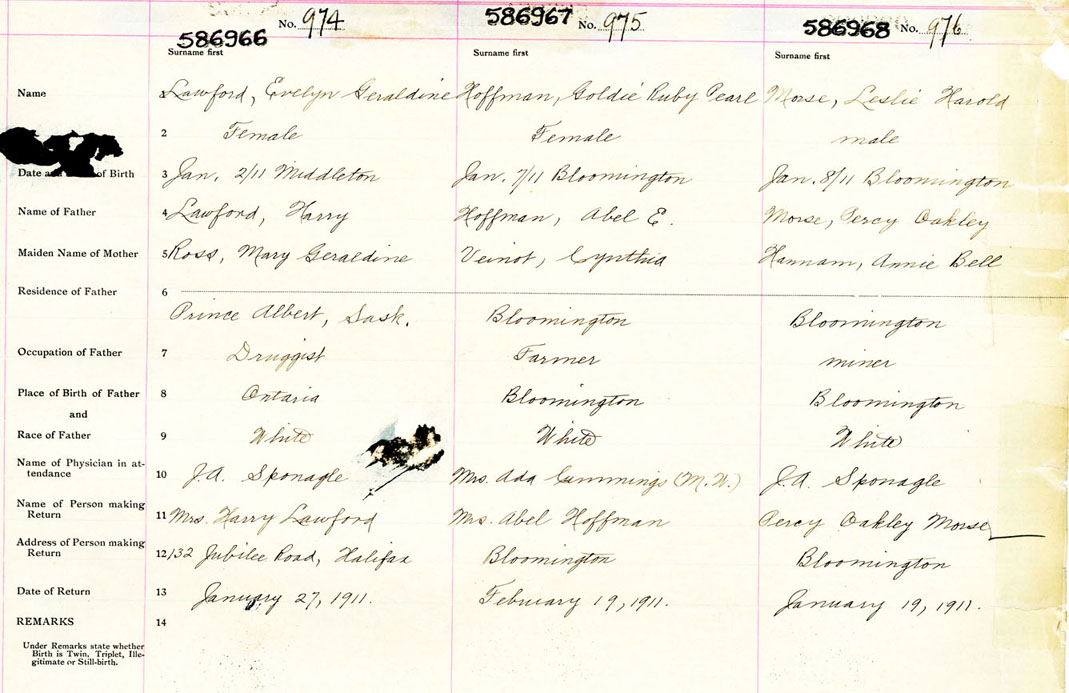 586966 No. 974 586967 No. 975 586968 No. 976
Surname first Surname first Surname first
Name 1 Lawford, Evelyn Geraldine Hoffman, Goldie Ruby Pearl Morse, Leslie Harold
2 Female Female male
Date of Birth 3 Jan. 2/11 Middleton Jan. 7/11 Bloomington Jan. 8/11 Bloomington
Name of Father 4 Lawford, Harry Hoffman, Abel E. Morse, Percy Oakley
Maiden Name of Mother 5 Ross, Mary Geraldine Veinot, Cynthia Hannam, Annie Bell
Residence of Father 6
Prince Albert, Sask. Bloomington Bloomington
Occupation of Father 7 Druggist Farmer miner
Place of Birth of Father 8 Ontario Bloomington Bloomington
and
Race of Father 9 White White White
Name of Physician in at-
tendance 10 J.A. Sponagle Mrs. Ada Cummings (M.W.) J.A. Sponagle
Name of Person making
Return 11 Mrs. Harry Lawford Mrs. Abel Hoffman Percy Oakley Morse
Address of Person making
Return 12 132 Jubilee Road, Halifax Bloomington Bloomington
Date of Return 13 January 27, 1911. February 19, 1911. January 19, 1911.
REMARKS 14
Under Remarks state whether
Birth is Twin, Triplet, Ille-
gitimate or Still-birth.